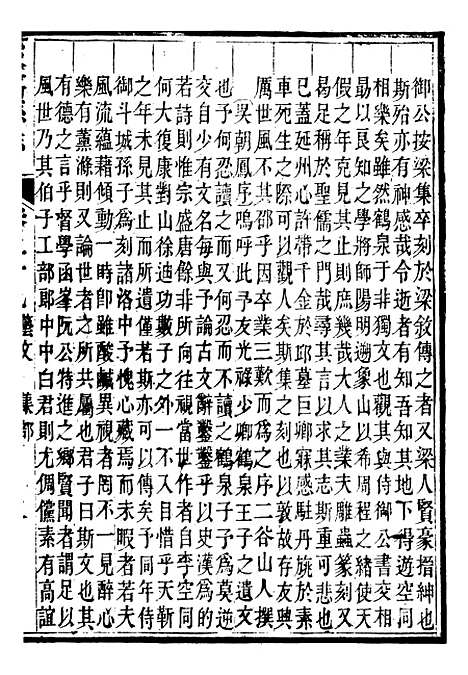 御公按梁集卒刻於梁敘傳之者又梁人賢豪指紳也
斯殆亦有神感哉令逝者有知吾知其地下得遊空同
相樂矣雖然鶴泉子非獨文也觀其與侍御公書交相
勗以良知之學將師陽明遡象山以希周程之緒使天
假之年克見其止則庶幾哉大人之業夫雕蟲篆刻又
足稱於聖儒之門哉丘墓其言以志斯重可悲也
已蓋延州心許帶千金於邱墓巨卿寢感駐丹旐於素
車死生之際可以觀人矣斯集之刻也以敦故存友興
厲世風不其卲乎予因卒業三歎而為之序二谷山人撰
吳朝鳳序嗚呼此予友光祿少卿鶴泉王子之遺文
也予何忍讀之而又何忍不讀之鶴泉子予為莫逆
交自少作文每與予論古文辭鑿鑿乎以史漢為的
若詩則惟宗盛唐餘非所向往視當世作者獨信陽
何大復康對山徐迪功數子之外一不入目惜乎天靳
之年未見其止而所遺僅若斯何以傳矣予同年侍
御斗城孫子爲刻諸洛中予愧心藏焉而未暇者若夫
風流蘊藉則一時雖酸鹹異視者罔不一見醉心
樂有薰滌又論世者之所共屬也君子曰斯文也其
有德之言乎督學函峯阮公特進之鄉賢聞者謂足以
風世乃其伯子工部郎中中白君則尤倜儻素有高誼